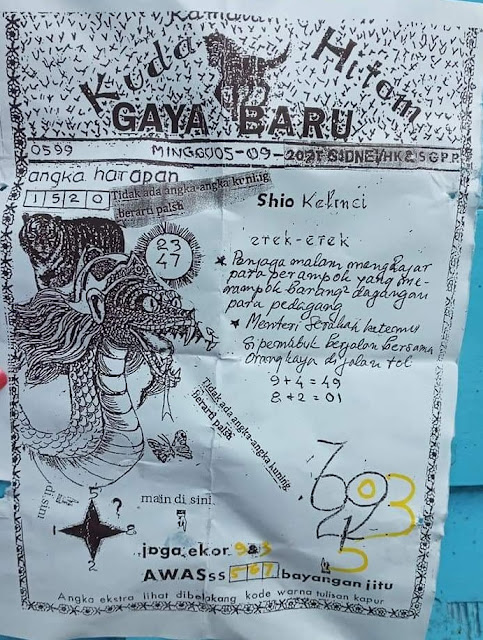 Ramalan
Kuda Hitam
GAYA BARU
0599 MINGGU 05-09-2021 SIDNEY/HK & SGP.P
angka harapan
1520
Tidak ada angka-angka kuning
berarti palsh
Shio Kelinci
23
47
etek-etek
* Penjaga malam menghajar
para perampok yang me-
rampok barang² dagangan
para pedagang
* Menteri Serakah ketemu
Si pemabuk berjalan bersama
Orang kaya di jalan tol
9+4=49
8+2=01
Tidak ada angka-angka kuning
berarti palsh
di sini
5
?
1
8
2
main di sini
6903
5
jaga ekor 983
AWASss 567 bayangan jitu
Angka ekstra lihat dibelakang kode warna tulisan kapur